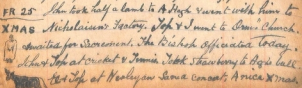 FR 25 John took half a lamb to A High & went with him to
XMAS Nicholaisen's factory. Top & I went to Orm' Church.
waited for Sacrament. The Bishop Officiated today.
John & Top at cricket & Tennis. Took Strawberry to Bob's Ball
& Top at Wesleyan Sand concert. A nice Xmas.